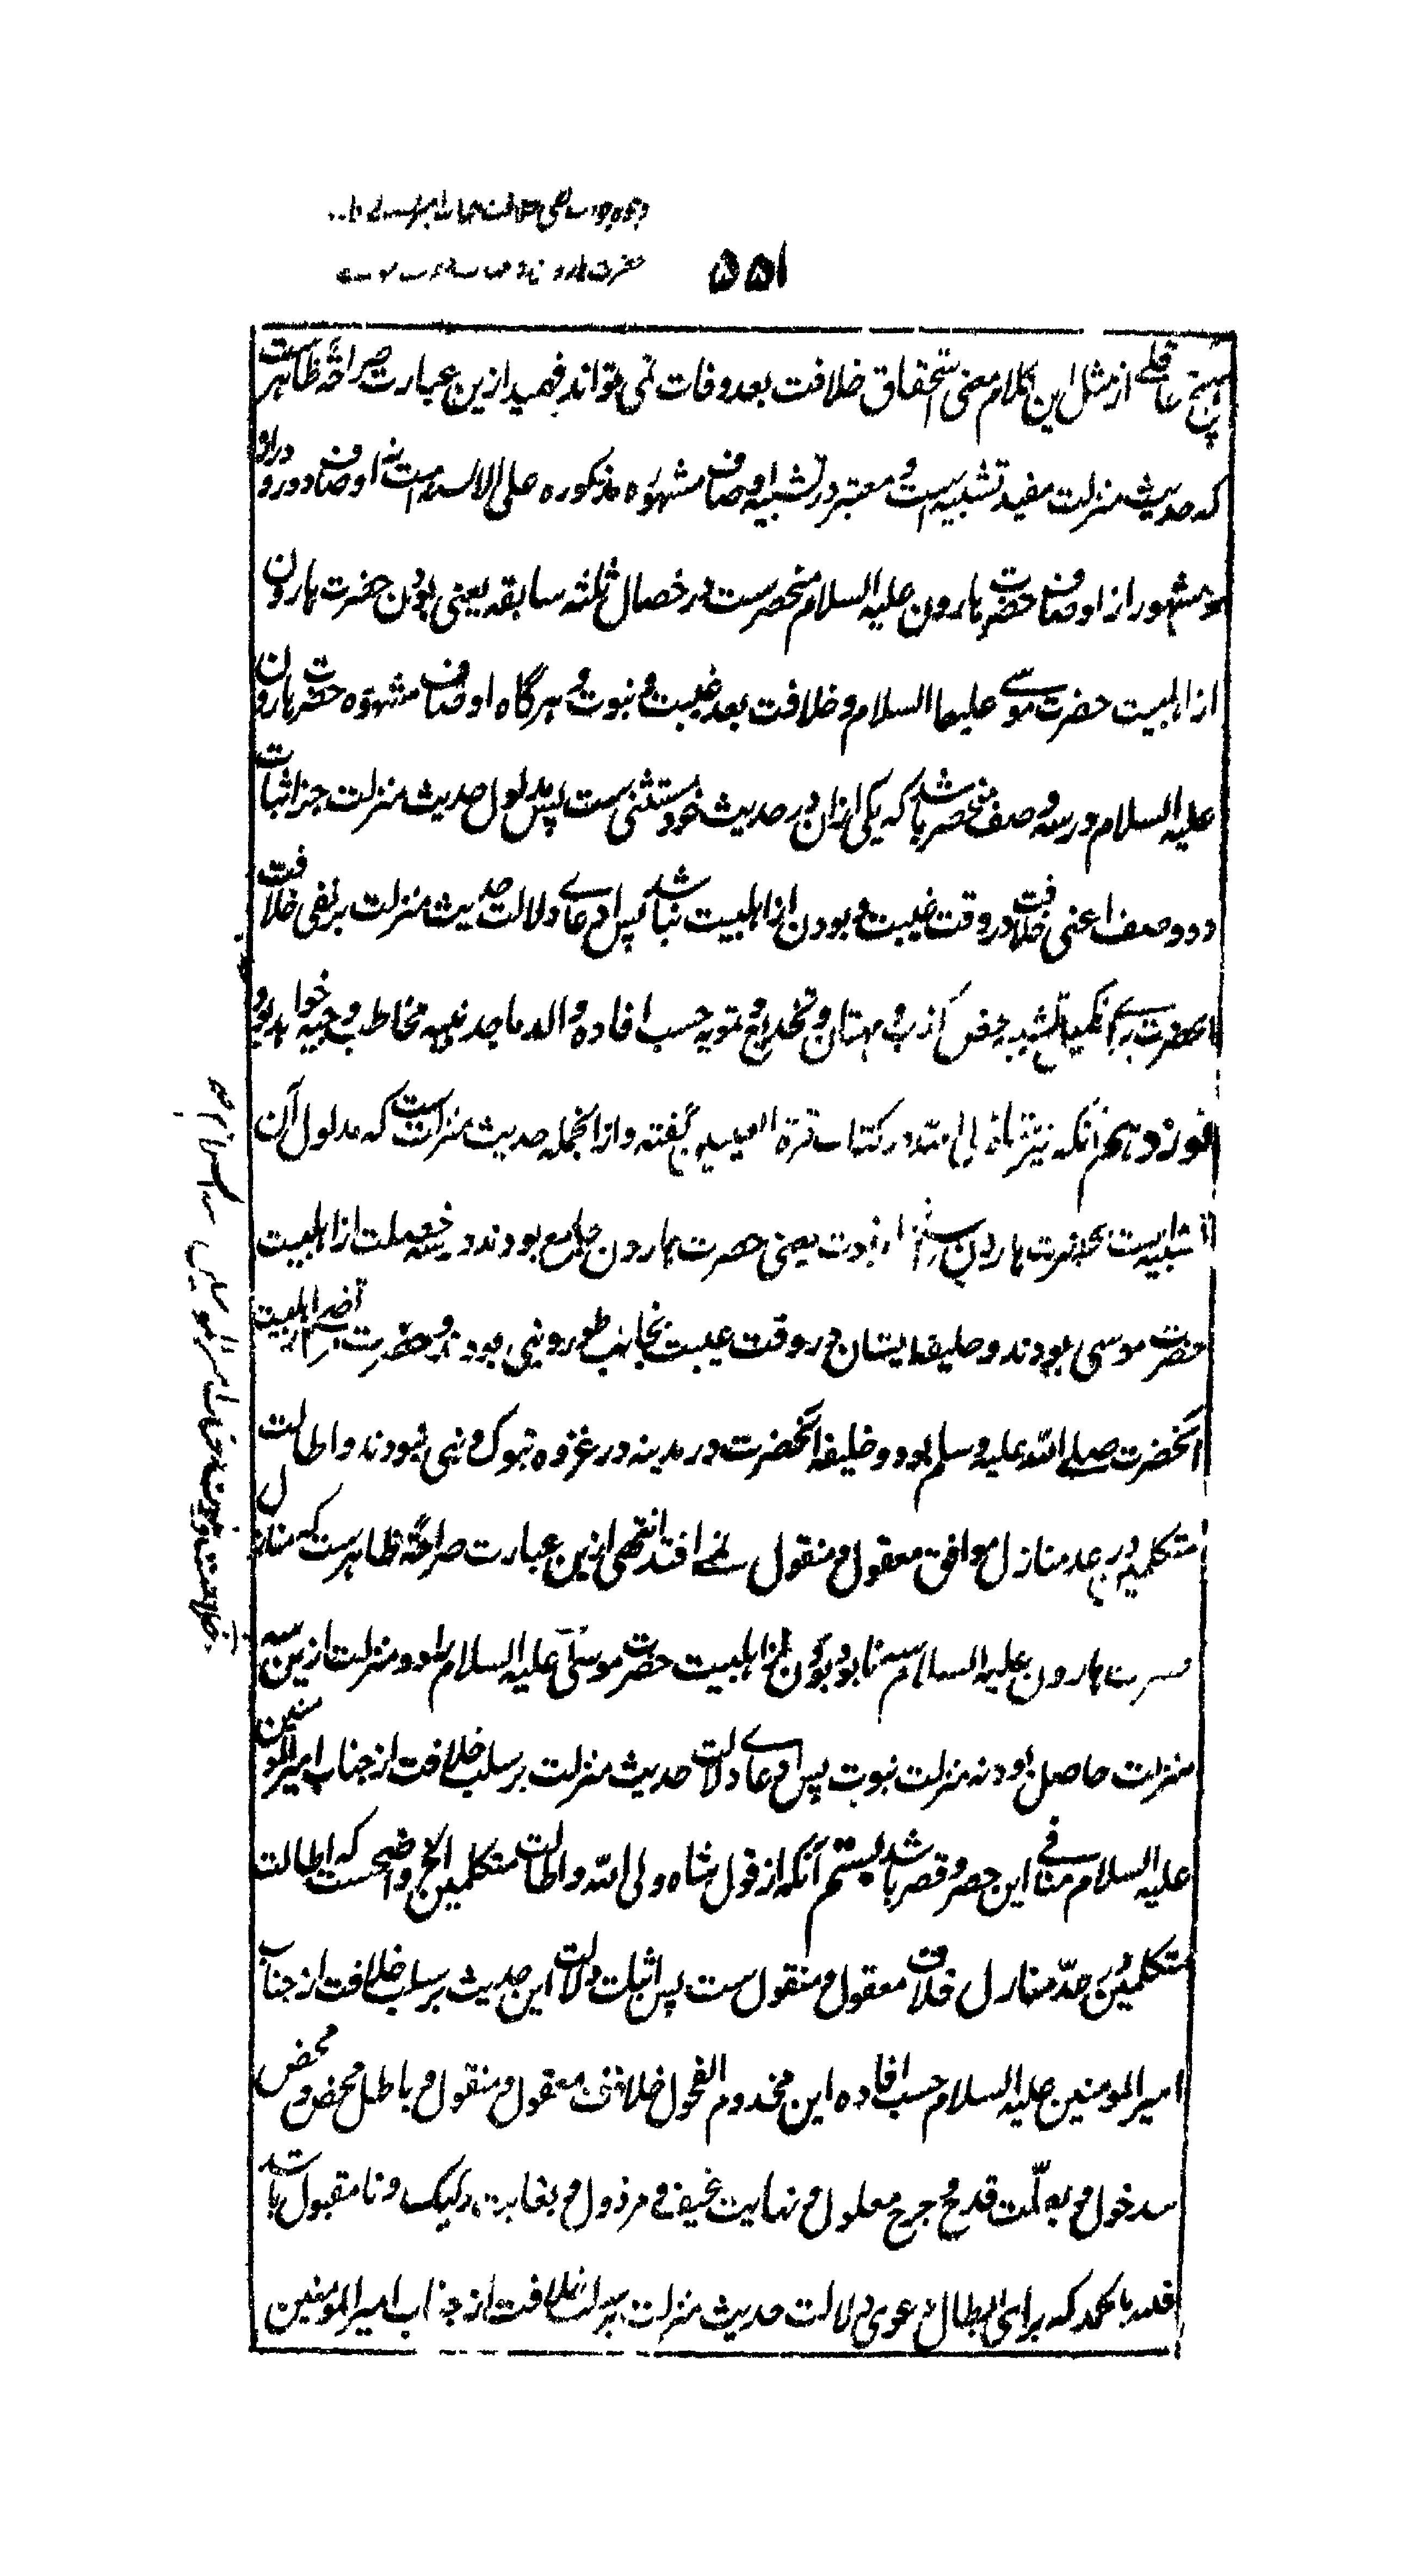 ۵۵۱
هیچ عاقلے از مثل این کلام معنی استحقاق خلافت بعد وفات نمی تواند فهمید ازین عبارت صراحةً ظاهرست
که حدیث منزلت مفید تشبیه است و معتبر در تشبیه اوصاف مشهوره مذکوره علی الالسنه است نه اوصاف دور و دراز
و مشهور از اوصاف حضرت هارون علیه السلام منحصر ست در خصال ثلثه سابقه یعنی بودن حضرت هارون
از اهلبیت حضرت موسے علیهما السلام و خلافت بعد غیبت و نبوت و هرگاه اوصاف مشهوره حضرت هارون
علیه السلام در سه وصف منحصر باشد که یکی ازان در حدیث خود مستثنی ست پس مدلول حدیث منزلت جز اثبات
دو وصف اعنی خلافت در وقت غیبت و بودن از اهلبیت نباشد پس ادعاے دلالت حدیث منزلت بر نفی خلافت
آنحضرت محض کذب و بهتان و تخدیع و تمویه حسب افاده والد ماجد نبیه مخاطب وجیه خواهد بود
نوزدهم آنکه نیز شاه ولی الله در کتاب قرة العینین گفته و از انجمله حدیث منزلت است که مدلول آن
تشبیه است بحضرت هارون نبوت یعنی حضرت هارون جامع بودند در سه خصلت از اهلبیت
حضرت موسی بودند و خلیفه ایشان در وقت غیبت بجانب طور و نبی بودند و حضرت مرتضی از اهلبیت
آنحضرت صلے الله علیه وسلم بود و خلیفه آنحضرت در مدینه در غزوه تبوک و نبی نبودند و اطالت
متکلمین در عد منازل موافق معقول و منقول نمے افتد انتهی ازین عبارت صراحةً ظاهر ست که منازل
حضرت هارون علیه السلام سه تا بود بودن از اهلبیت حضرت موسی علیه السلام دو منزلت ازین سه
منزلت حاصل بود نه منزلت نبوت پس ادعاے دلالت حدیث منزلت بر سلب خلافت از جناب امیر المومنین
علیه السلام منافے این حصر و قصر باشد بستم آنکه از قول شاه ولی الله و اطالت متکلمین الخ واضحست که اطالت
متکلمین در عدّ منازل خلاف معقول و منقول ست پس اثبات دلالت این حدیث بر سلب خلافت از جناب
امیر المومنین علیه السلام حسب افاده این مخدوم الفحول خلاف معقول و منقول و باطل محض و محض
مدخول و بعلّت قدح و جرح معلول و نهایت سخیف و مرذول و بغایت رکیک و نا مقبول باشد
که برای ابطال دعوی دلالت حدیث منزلت بر سلب خلافت از جناب امیر المومنین